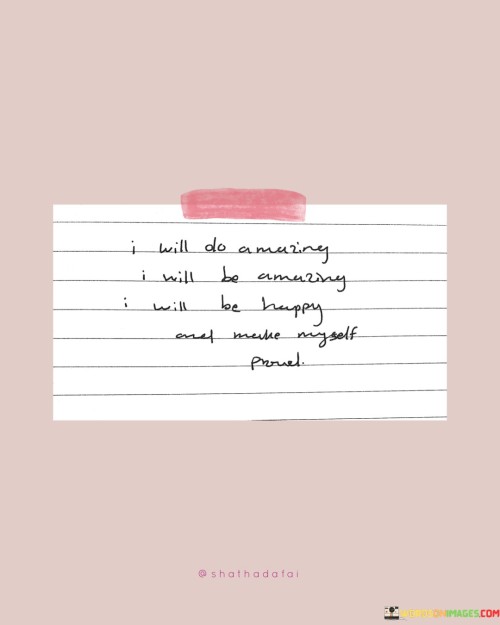 i will do amazing
i will be amazing
i will be happy
and make myself
proud.
@shathadafai